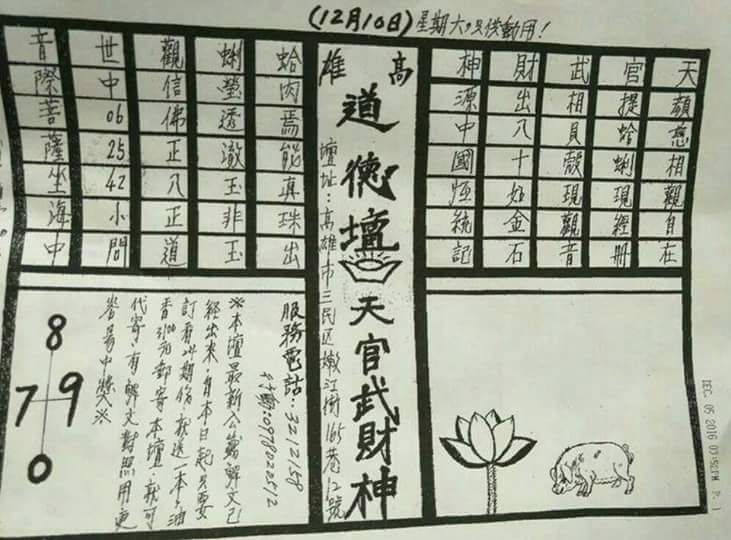 (12月10日)星期六只供動用!
天顏慈相親自在
官提蛤蜊現經冊
武相貝殼現觀音
財出八十如金石
神源中國恆統記
高雄
道德壇
天官武財神
壇址:高雄市三民区嫩江街165巷12號
蛤肉焉能真珠出
蜊螢透澈玉非玉
觀信佛正八正道
世中06 25 42小問
音際菩薩坐海中
服務電話:3212158
行動:0978022512
※本壇最新公 解文已
經出來,自本日起只要
訂看24期份,就送一本,油
香3100元郵寄本壇,就可
代寄,有解文對照用更
容易中獎※
8
7 9
0
DEC. 05 2016 07:52PM P. 1